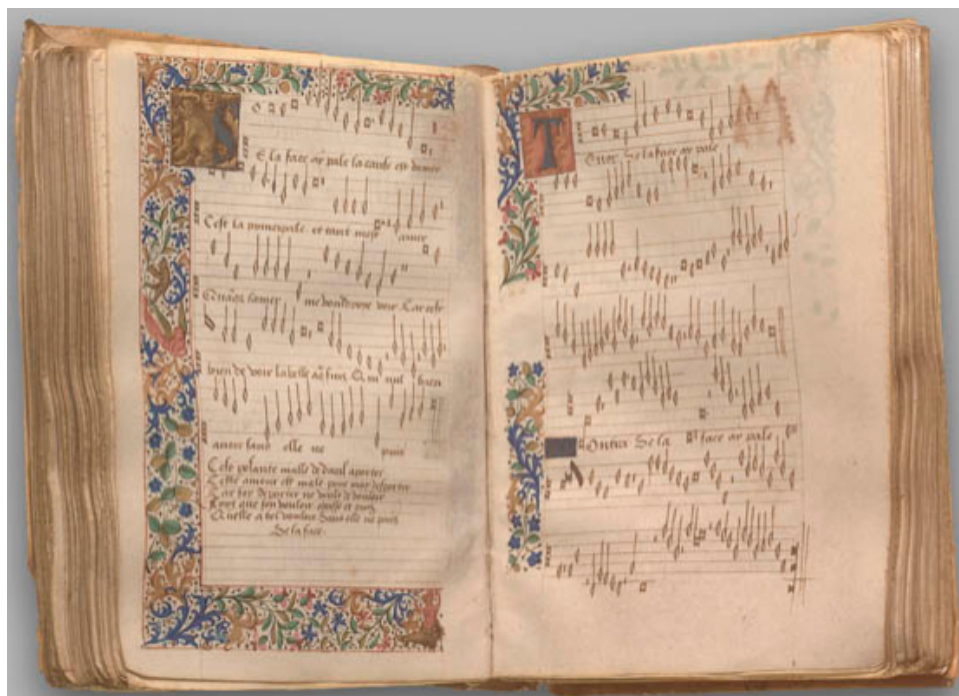 SE la face ay pale la cause est damer
Cest la principale et tant mest amer
lamer me voudroye voir Car
bien de voir la belle a qui suis nul bien
avoir sans elle ne puis
Ceste pesante malle de dueil a porter
Ceste amour est male pour moy deporter
Car soy deporter ne veult de vouloir
son vouloir et puis
Quelle a tel Sans elle ne puis
Se la face.
Tenor Se la face ay pale
Contra Se la face ay pale